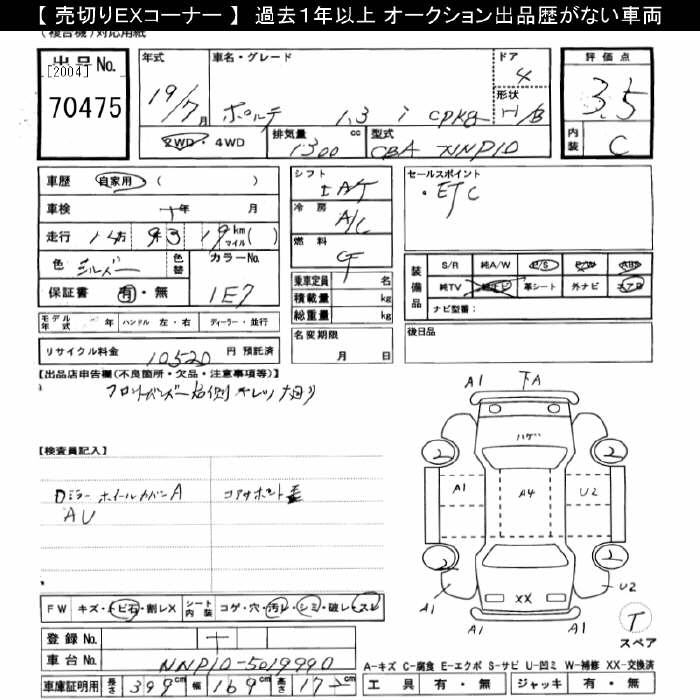 【 売切りEXコーナー 】 過去１年以上 オークション出品歴がない車両
(複合機)対応用紙
出品No.
[2004]
70475
年式
19/7月
車名・グレード
ポルテ 1.3 i cpkg
ドア
4
形状
H/B
評価点
3.5
内装
C
2WD・4WD
排気量
1300 cc
型式
CBA NNP10
車歴 自家用 ( )
車検 年 月
走行 km マイル( )
色 シルバー 色替
カラーNo.
1E7
保証書 有・無
シフト
IAT
冷房
A/C
燃料
G
乗車定員 名
積載量 kg
総重量 kg
セールスポイント
・ETC
装備品
S/R 純A/W P/S P/W ABS
純TV 純ナビ 革シート 外ナビ エアB
ナビ型番：
モデル年式 年 ハンドル 左・右 ディーラー・並行
名変期限
月 日
後日品
リサイクル料金 10520 円 預託済
【出品店申告欄(不良箇所・欠品・注意事項等)】
フロントバンパー右側
【検査員記入】
Dミラー ホイールカバーA
AU
コアサポート
A1
下A
A1
ハゲ
2
2
A1
A4
U2
2
2
A1
XX
A1
U2
T
スペア
FW キズ・トビ石・割レX
シート内装 コゲ・穴・汚レ・シミ・破レ・スレ
登録No.
車台No. NNP10-5019990
車庫証明用 長さ 399 cm 幅 169 cm 高さ 172 cm
A-キズ C-腐食 E-エクボ S-サビ U-凹ミ W-補修 XX-交換済
工具 有・無 ジャッキ 有・無